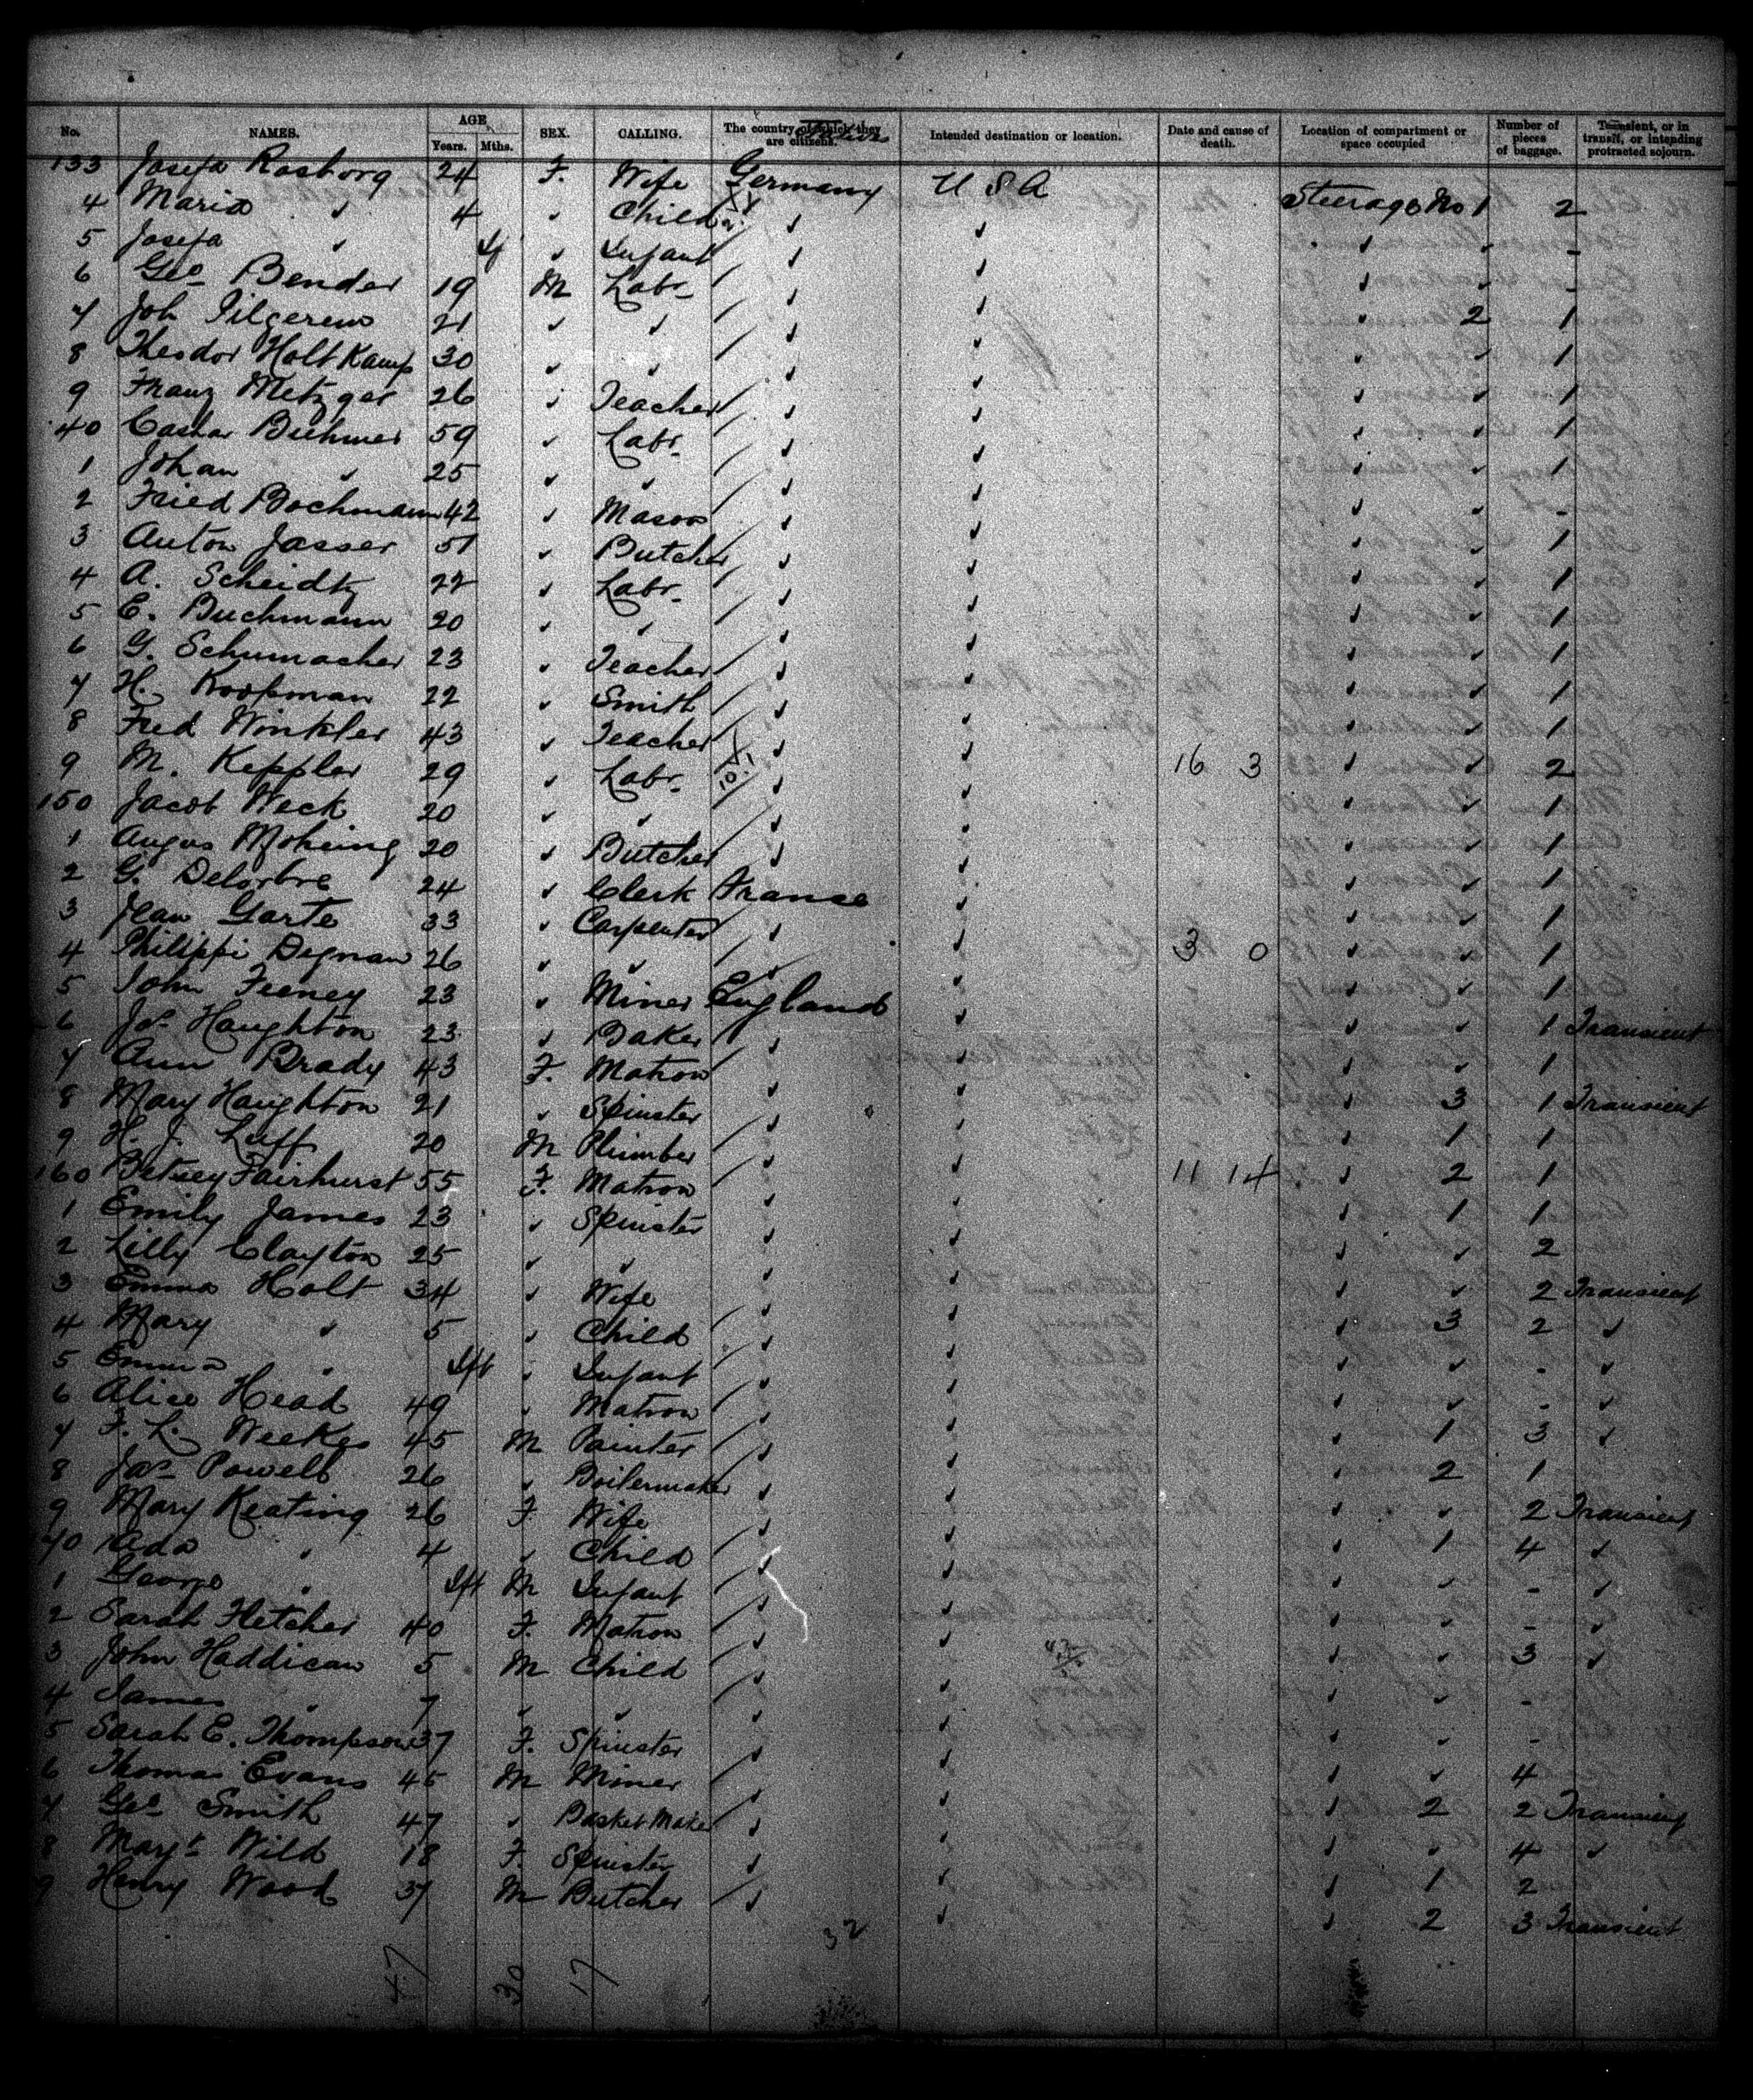 No. NAMES. AGE Years. Mths. SEX. CALLING. The country of which they are citizens. Intended destination or location. Date and cause of death. Location of compartment or space occupied Number of pieces of baggage. Transient, or in transit, or intending protracted sojourn.
133 Josefa Rosborg 24 F. Wife Germany U S A Steerage No 1 2
4 Maria ✓ 4 ✓ Child ✓ ✓ ✓ ✓ -
5 Josefa ✓ ✓ Infant ✓ ✓ ✓ ✓ -
6 Geo Bender 19 M Labr ✓ ✓ ✓ 2 1
7 Joh 21 ✓ ✓ ✓ ✓ ✓ ✓ 1
8 Theodor Holtkamp 30 ✓ ✓ ✓ ✓ ✓ ✓ 1
9 Franz Metzger 26 ✓ Teacher ✓ ✓ ✓ ✓ 1
140 Buhmer 59 ✓ Labr ✓ ✓ ✓ ✓ 1
1 Johan ✓ 25 ✓ ✓ ✓ ✓ ✓ ✓ -
2 Fried Bochmann 42 ✓ Mason ✓ ✓ ✓ ✓ 1
3 Anton Jasser 51 ✓ Butcher ✓ ✓ ✓ ✓ 1
4 A. Scheidtz 22 ✓ Labr ✓ ✓ ✓ ✓ 1
5 E. Buchmann 20 ✓ ✓ ✓ ✓ ✓ ✓ 1
6 G. Schumacher 23 ✓ Teacher ✓ ✓ ✓ ✓ 1
7 H. Koopman 22 ✓ Smith ✓ ✓ ✓ ✓ 1
8 Fred Winkler 43 ✓ Teacher ✓ ✓ 16 3 ✓ ✓ 2
9 M. Keppler 29 ✓ Labr ✓ ✓ ✓ ✓ 1
150 Jacob Weck 20 ✓ ✓ ✓ ✓ ✓ ✓ 1
1 Angus Mohring 20 ✓ Butcher ✓ ✓ ✓ ✓ 1
2 G. Delorbre 24 ✓ Clerk France ✓ ✓ ✓ 1
3 Jean Garte 33 ✓ Carpenter ✓ ✓ 3 0 ✓ ✓ 1
4 Philippi Degman 26 ✓ ✓ ✓ ✓ ✓ ✓ 1
5 John Feeney 23 ✓ Miner England ✓ ✓ ✓ 1 Transient
6 Jas Haughton 23 ✓ Baker ✓ ✓ ✓ ✓ 1
7 Ann Brady 43 F. Matron ✓ ✓ ✓ 3 1 Transient
8 Mary Haughton 21 ✓ Spinster ✓ ✓ ✓ 1 1
9 H. J. Luff 20 M Plumber ✓ ✓ 11 14 ✓ 2 1
160 Betsey Fairhurst 55 F. Matron ✓ ✓ ✓ 1 1
1 Emily James 23 ✓ Spinster ✓ ✓ ✓ ✓ 2
2 Lilly Clayton 25 ✓ ✓ ✓ ✓ ✓ ✓ 2 Transient
3 Emma Holt 34 ✓ Wife ✓ ✓ ✓ 3 2 ✓
4 Mary ✓ 5 ✓ Child ✓ ✓ ✓ ✓ - ✓
5 Emma ✓ Ift ✓ Infant ✓ ✓ ✓ ✓ - ✓
6 Alice Head 49 ✓ Matron ✓ ✓ ✓ 1 3 ✓
7 F. L. Weekes 45 M Painter ✓ ✓ ✓ 2 1
8 Jas Powell 26 ✓ Boilermaker ✓ ✓ ✓ ✓ 2 Transient
9 Mary Keating 26 F. Wife ✓ ✓ ✓ 1 4 ✓
70 Ada ✓ 4 ✓ Child ✓ ✓ ✓ ✓ - ✓
1 George ✓ Ift M Infant ✓ ✓ ✓ ✓ - ✓
2 Sarah Fletcher 40 F. Matron ✓ ✓ ✓ ✓ 3 ✓
3 John Haddican 5 M Child ✓ ✓ ✓ ✓ -
4 James ✓ 7 ✓ ✓ ✓ ✓ ✓ ✓ -
5 Sarah E. Thompson 37 F. Spinster ✓ ✓ ✓ ✓ 4
6 Thomas Evans 45 M Miner ✓ ✓ ✓ 2 2 Transient
7 Geo Smith 47 ✓ Basket Maker ✓ ✓ ✓ ✓ 4 ✓
8 Margt Wild 18 F. Spinster ✓ ✓ ✓ 1 2
9 Henry Wood 37 M Butcher ✓ ✓ ✓ 2 3 Transient
32
47 30 17